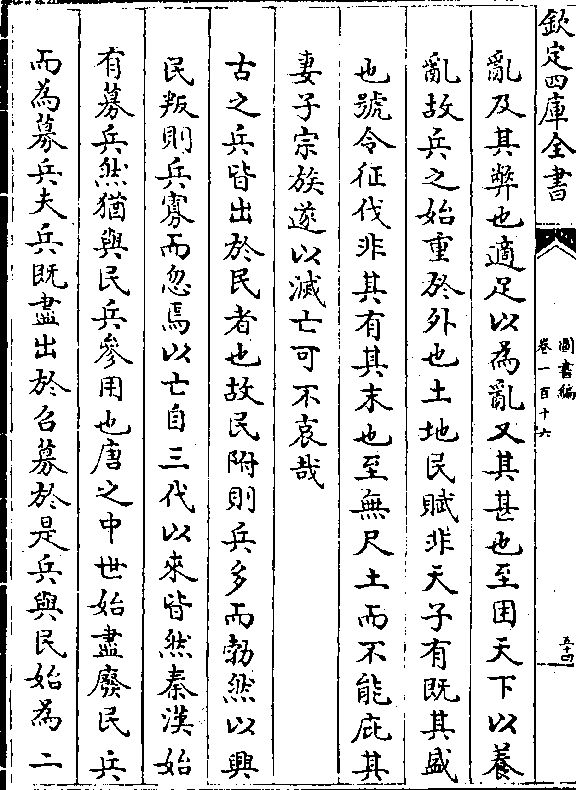 欽定四庫全書
圖書編
卷一百十六
五十四
亂及其弊也適足以為亂又其甚也至困天下以養
亂故兵之始重於外也土地民賦非天子有既其盛
也號令征伐非其有其末也至無尺土而不能庇其
妻子宗族遂以滅亡可不哀哉
古之兵皆出於民者也故民附則兵多而勃然以興
民叛則兵寡而忽焉以亡自三代以來皆然秦漢始
有募兵然猶與民兵參用也唐之中世始盡廢民兵
而為募兵夫兵既盡出於召募於是兵與民始為二